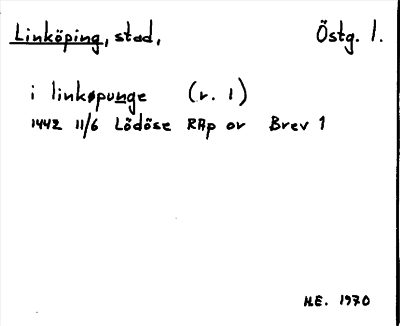 Linköping, stad, Östg. l.
i linkøpunge (r. 1)
1442 11/6 Lödöse RAp or Brev 1
H.E. 1970